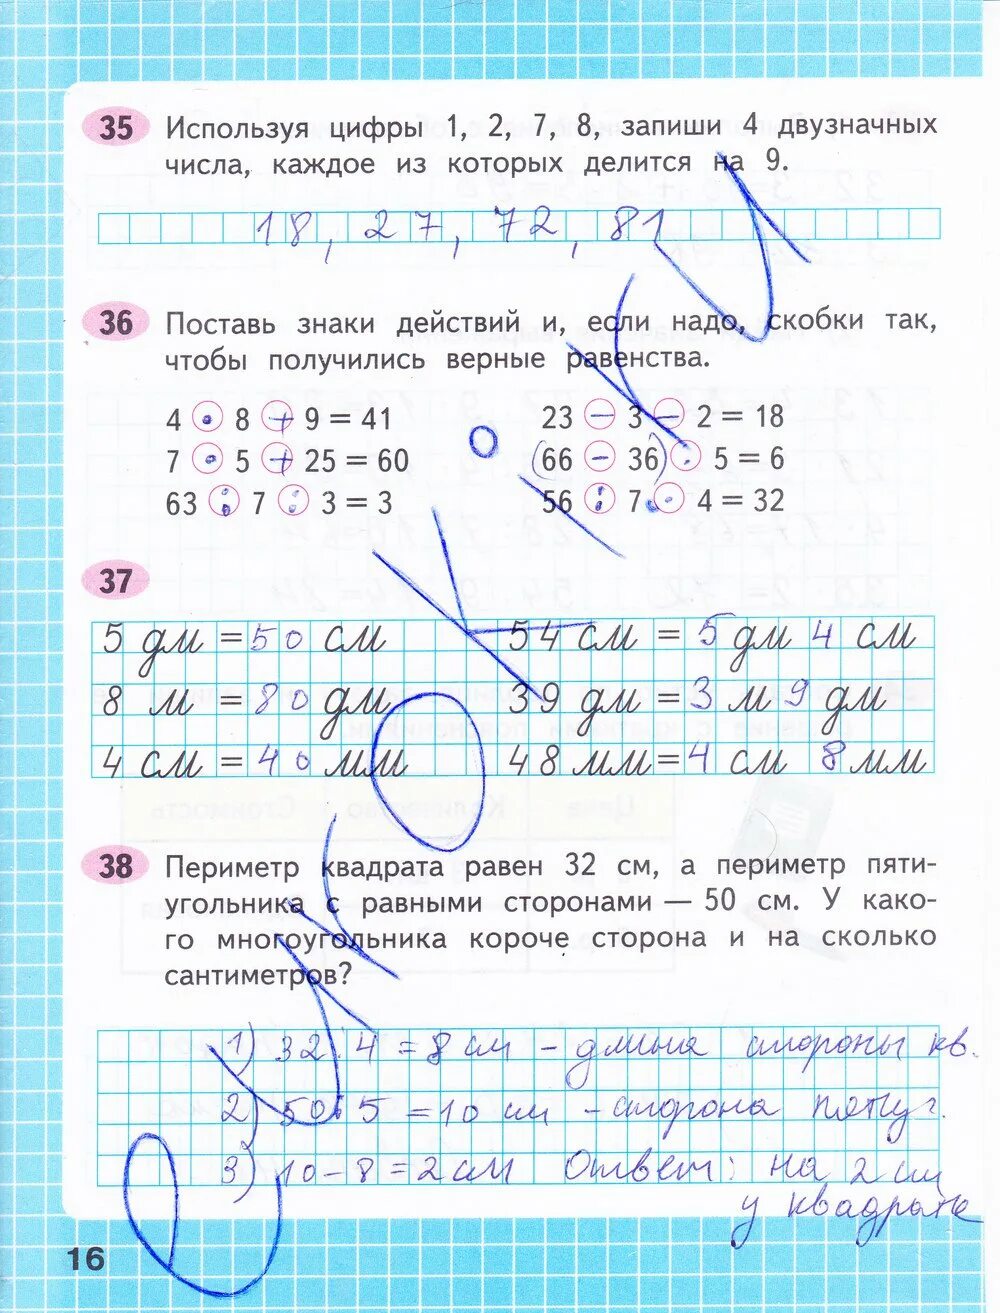 35 Используя цифры 1, 2, 7, 8, запиши 4 двузначных
числа, каждое из которых делится на 9.
18, 27, 72, 81
36 Поставь знаки действий и, если надо, скобки так,
чтобы получились верные равенства.
4 · 8 + 9 = 41
23 − 3 − 2 = 18
7 · 5 + 25 = 60
(66 − 36) : 5 = 6
63 : 7 : 3 = 3
56 : 7 · 4 = 32
37
5 дм = 50 см
54 см = 5 дм 4 см
8 м = 80 дм
39 дм = 3 м 9 дм
4 см = 40 мм
48 мм = 4 см 8 мм
38 Периметр квадрата равен 32 см, а периметр пяти-
угольника с равными сторонами — 50 см. У како-
го многоугольника короче сторона и на сколько
сантиметров?
1) 32 : 4 = 8 см – длина стороны кв.
2) 50 : 5 = 10 см – сторона пятиуг.
3) 10 – 8 = 2 см Ответ: на 2 см
у квадрата
16